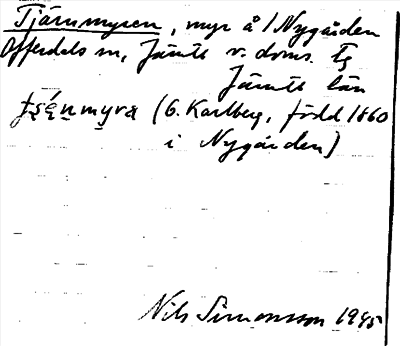 Tjärnmyren, myr å 1 Nygården
Offerdals sn, Jämtl v. doms. Tg
Jämtl län
(G. Karlberg, född 1860
i Nygården)
Nils Simonsson 1945